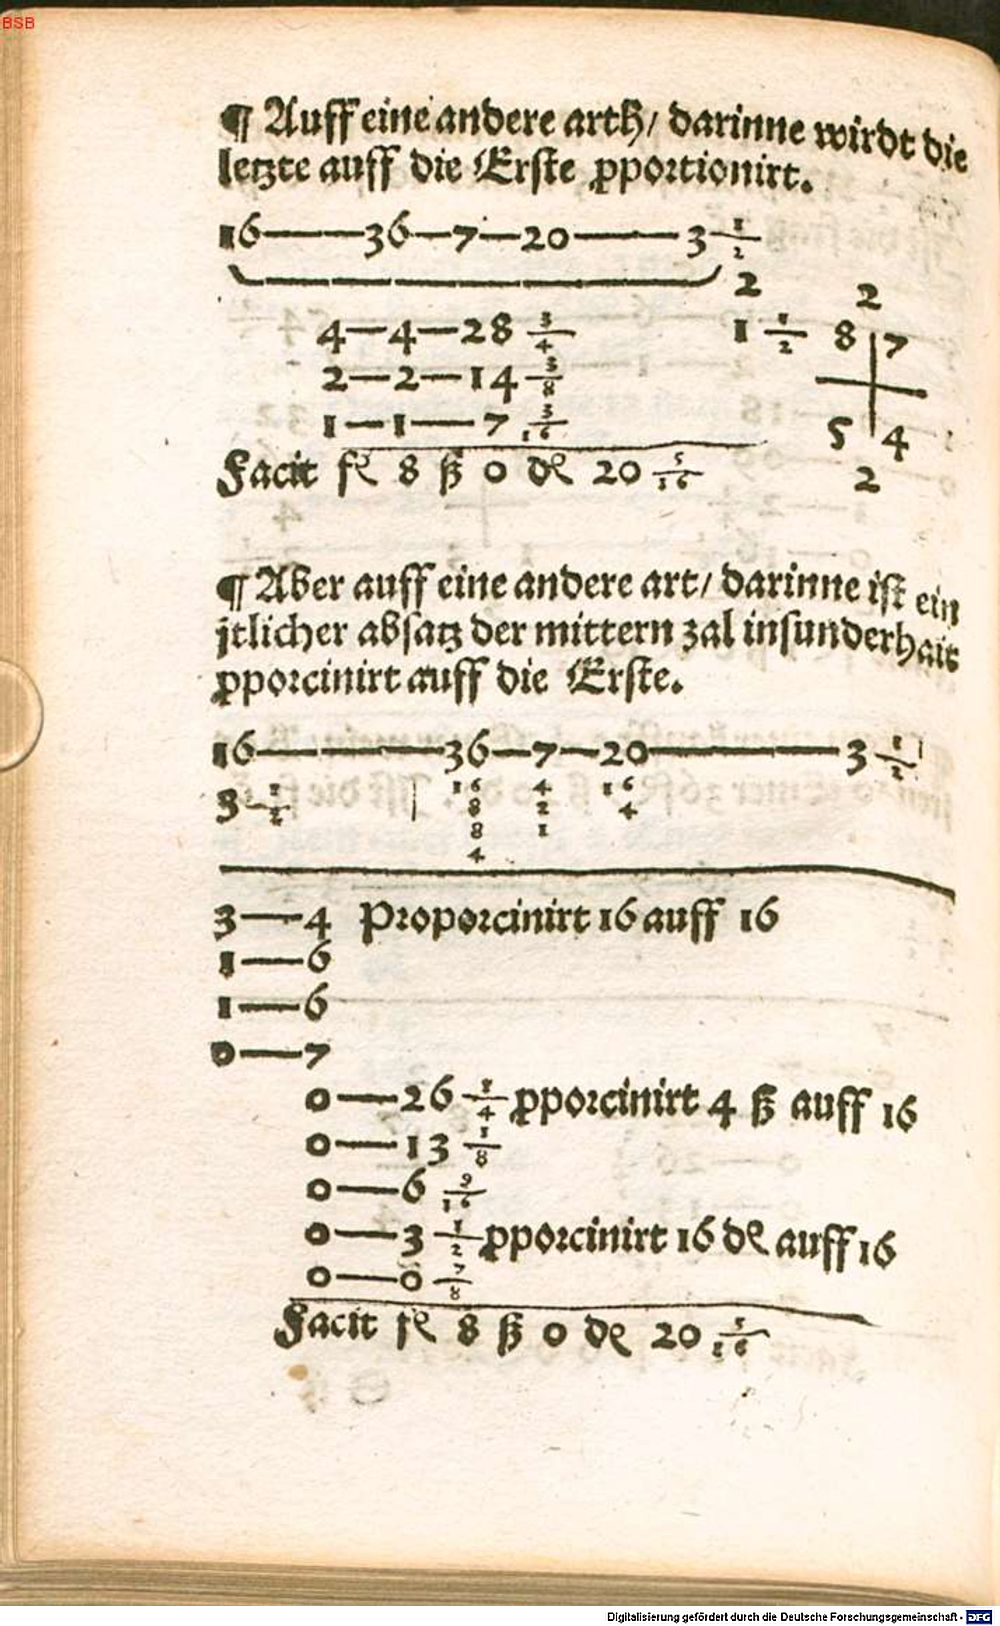 BSB
¶ Auff eine andere arth/ darinne wirdt die
letzte auff die Erste ꝓportionirt.
16——36—7—20——3 1/2
2 2
4—4—28 3/4 1 1/2 8 7
2—2—14 3/8
1—1—7 3/16 5 4
Facit fl 8 ß 0 dl 20 5/16 2
¶ Aber auff eine andere art/ darinne ist ein
jtlicher absatz der mittern zal insunderhait
ꝓporcinirt auff die Erste.
16——36—7—20——3 1/2
3 1/2 16 4 16
8 2 4
8 1
4
3—4 Proporcinirt 16 auff 16
1—6
1—6
0—7
0—26 1/4 ꝓporcinirt 4 ß auff 16
0—13 1/8
0—6 9/16
0—3 1/2 ꝓporcinirt 16 dl auff 16
0—0 7/8
Facit fl 8 ß 0 dl 20 5/16
Digitalisierung gefördert durch die Deutsche Forschungsgemeinschaft - DFG